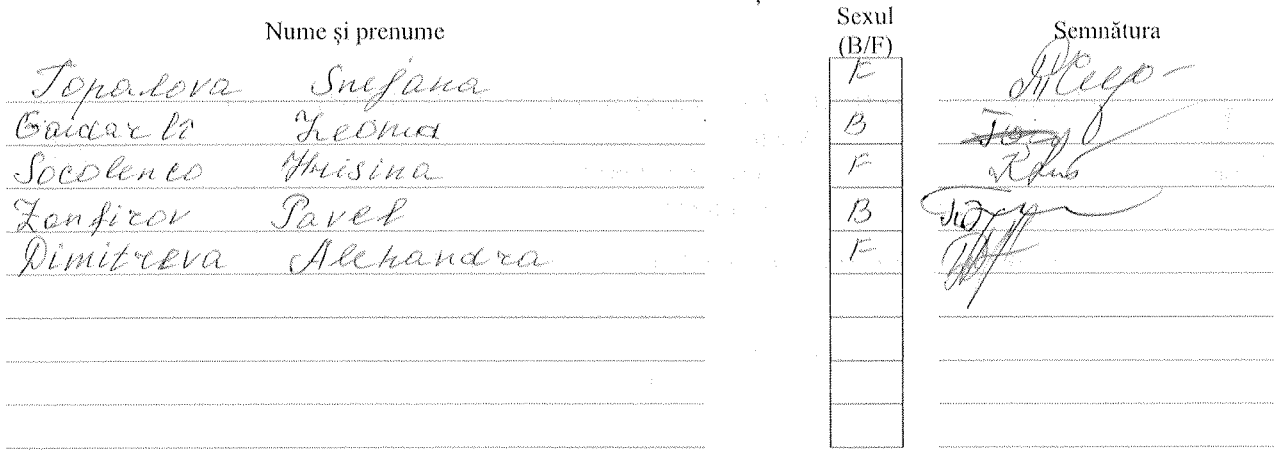 Nume și prenume Sexul (B/F) Semnătura
Topalova Snejana F
Gaidarli Leonid B
Socolenco Hrisina F
Zanfirov Pavel B
Dimitreva Alexandra F